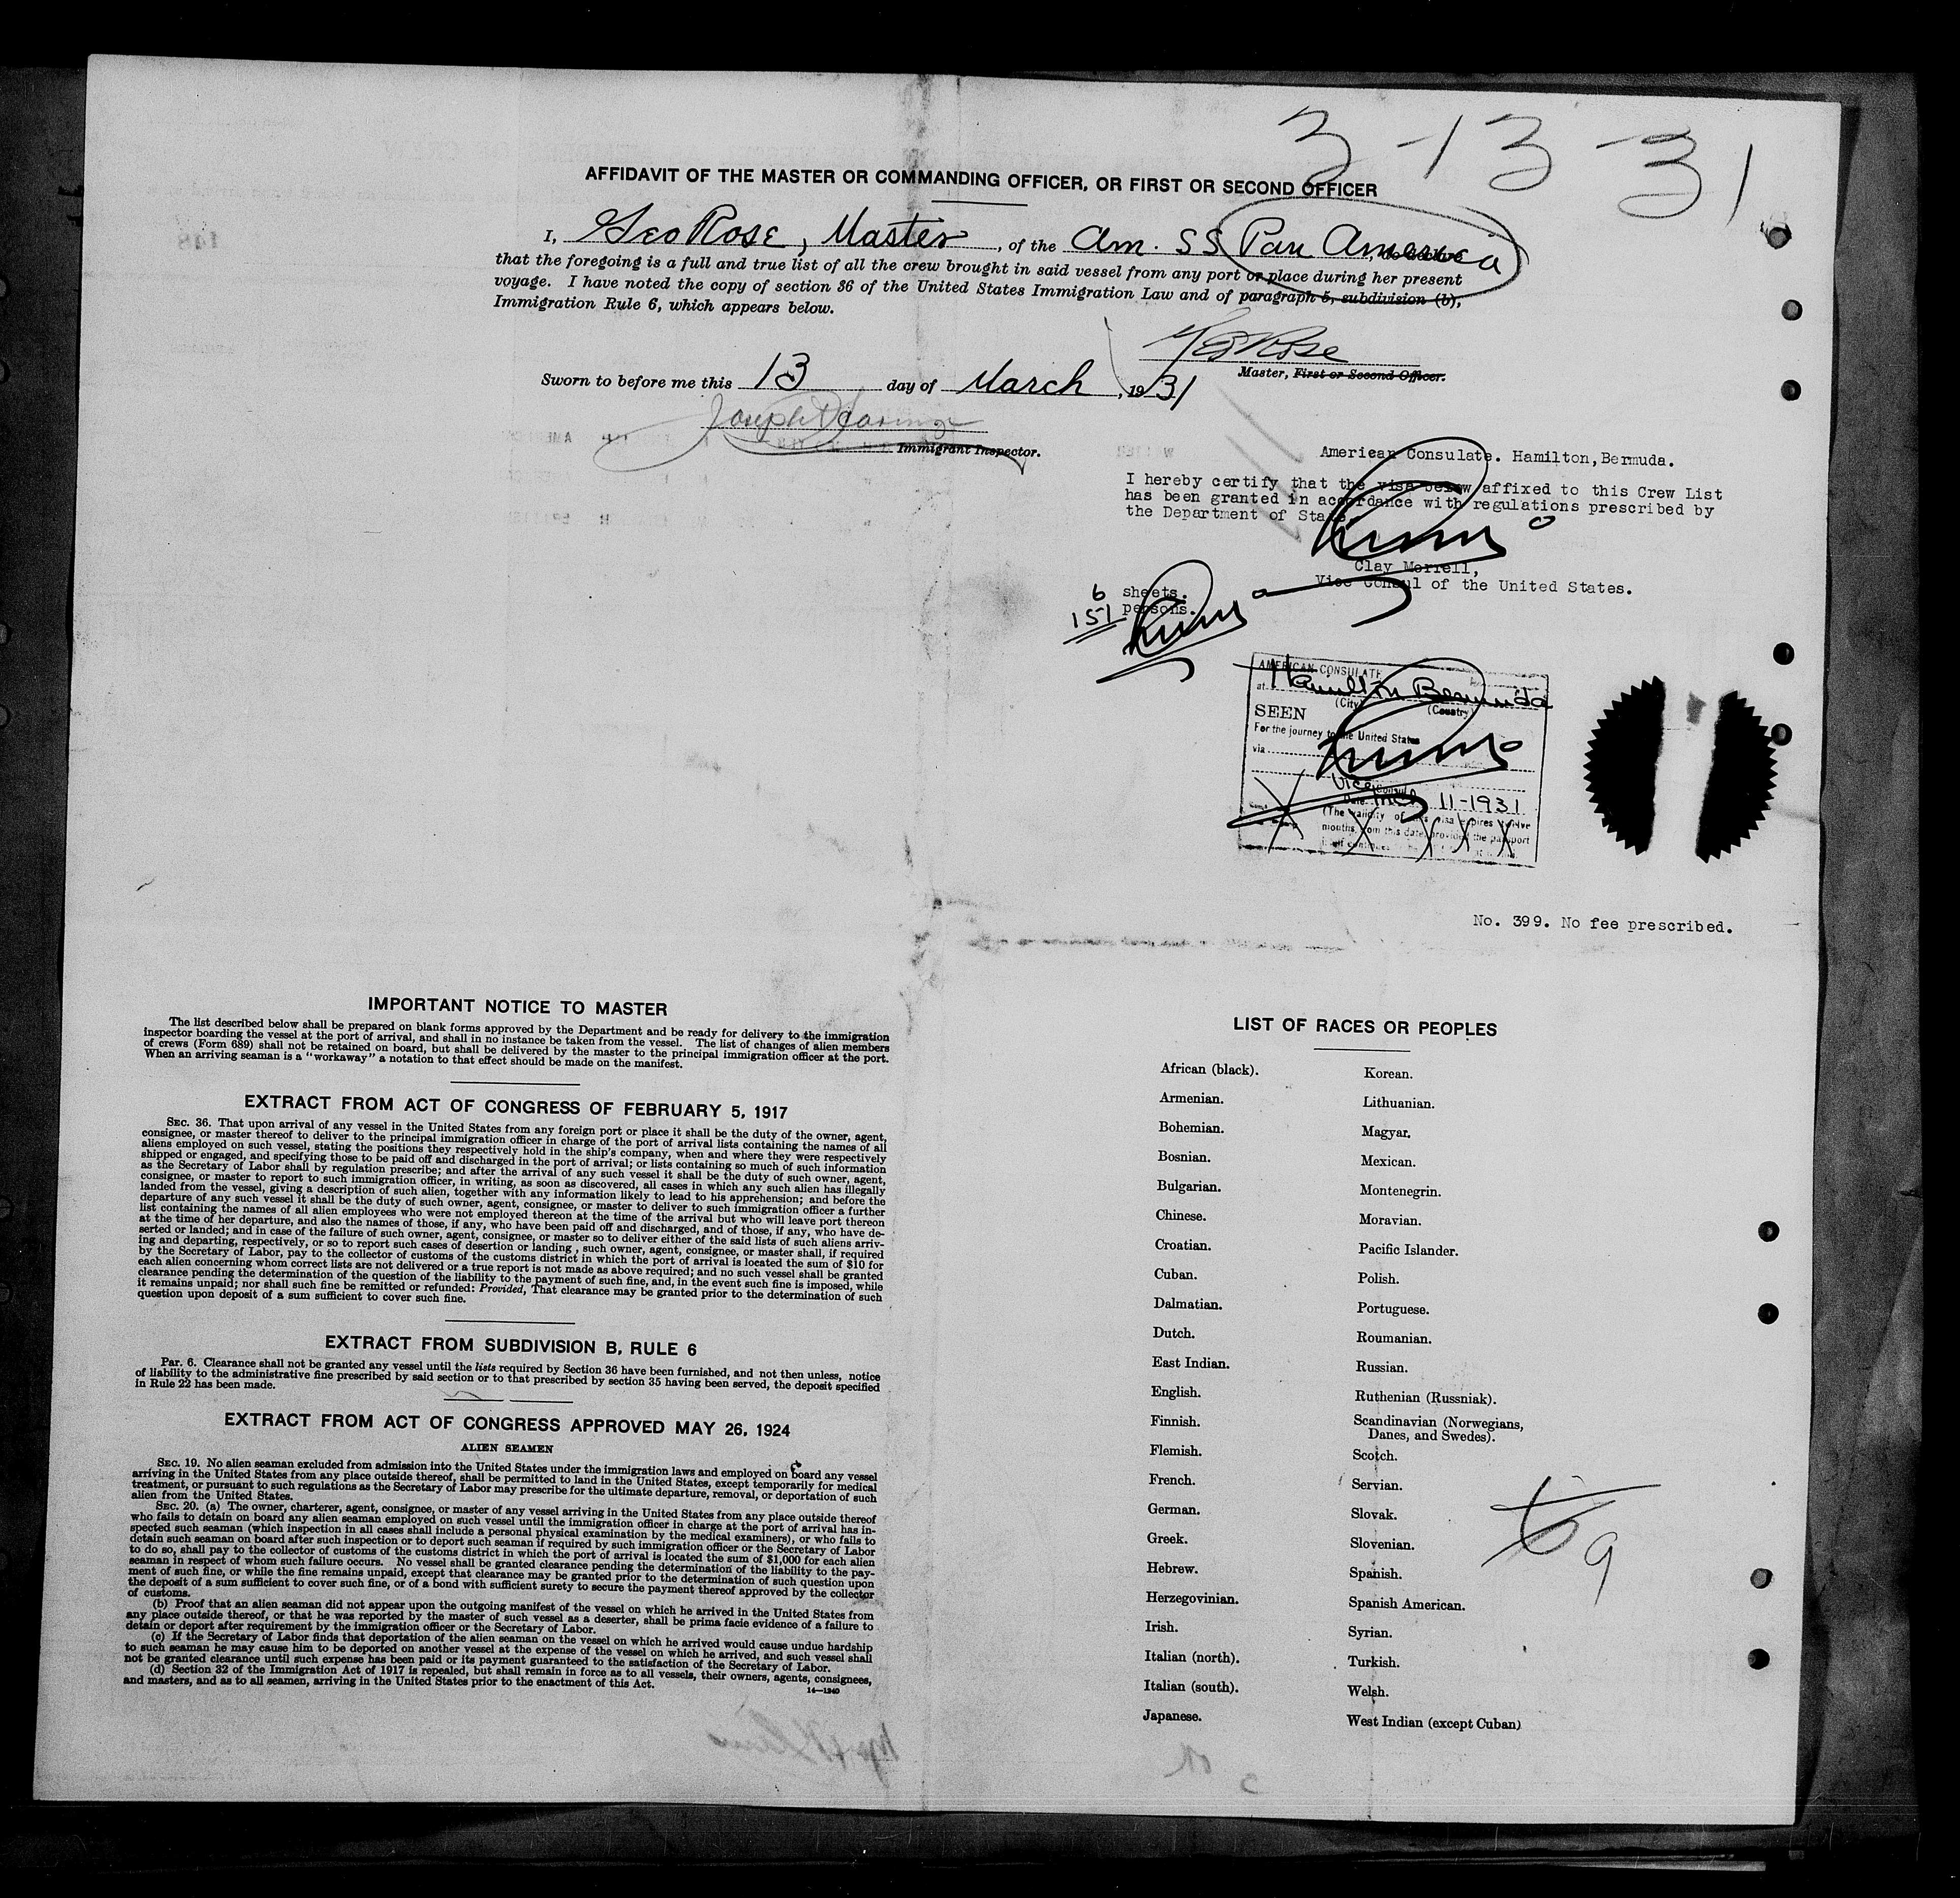 3-13-31
AFFIDAVIT OF THE MASTER OR COMMANDING OFFICER, OR FIRST OR SECOND OFFICER
I, Geo Rose, Master, of the Am. SS Pan America
that the foregoing is a full and true list of all the crew brought in said vessel from any port or place during her present
voyage. I have noted the copy of section 36 of the United States Immigration Law and of paragraph 5, subdivision (b),
Immigration Rule 6, which appears below.
Geo Rose
Master, First or Second Officer.
Sworn to before me this 13 day of March, 1931
Joseph
Immigrant Inspector.
American Consulate. Hamilton, Bermuda.
I hereby certify that the visa below affixed to this Crew List
has been granted in accordance with regulations prescribed by
the Department of State.
Clay Merrell,
Vice Consul of the United States.
6 sheets.
151 persons.
AMERICAN CONSULATE
at Hamilton Bermuda
(City) (Country)
SEEN
For the journey to the United States
via
Vice Consul
Date Mch 11-1931
(The validity of this visa expires twelve
months from this date, provided the passport
No. 399. No fee prescribed.
IMPORTANT NOTICE TO MASTER
The list described below shall be prepared on blank forms approved by the Department and be ready for delivery to the immigration
inspector boarding the vessel at the port of arrival, and shall in no instance be taken from the vessel. The list of changes of alien members
of crews (Form 689) shall not be retained on board, but shall be delivered by the master to the principal immigration officer at the port.
When an arriving seaman is a "workaway" a notation to that effect should be made on the manifest.
EXTRACT FROM ACT OF CONGRESS OF FEBRUARY 5, 1917
SEC. 36. That upon arrival of any vessel in the United States from any foreign port or place it shall be the duty of the owner, agent,
consignee, or master thereof to deliver to the principal immigration officer in charge of the port of arrival lists containing the names of all
aliens employed on such vessel, stating the positions they respectively hold in the ship's company, when and where they were respectively
shipped or engaged, and specifying those to be paid off and discharged in the port of arrival; or lists containing so much of such information
as the Secretary of Labor shall by regulation prescribe; and after the arrival of any such vessel it shall be the duty of such owner, agent,
consignee, or master to report to such immigration officer, in writing, as soon as discovered, all cases in which any such alien has illegally
landed from the vessel, giving a description of such alien, together with any information likely to lead to his apprehension; and before the
departure of any such vessel it shall be the duty of such owner, agent, consignee, or master to deliver to such immigration officer a further
list containing the names of all alien employees who were not employed thereon at the time of the arrival but who will leave port thereon
at the time of her departure, and also the names of those, if any, who have been paid off and discharged, and of those, if any, who have de-
serted or landed; and in case of the failure of such owner, agent, consignee, or master so to deliver either of the said lists of such aliens arriv-
ing and departing, respectively, or so to report such cases of desertion or landing , such owner, agent, consignee, or master shall, if required
by the Secretary of Labor, pay to the collector of customs of the customs district in which the port of arrival is located the sum of $10 for
each alien concerning whom correct lists are not delivered or a true report is not made as above required; and no such vessel shall be granted
clearance pending the determination of the question of the liability to the payment of such fine, and, in the event such fine is imposed, while
it remains unpaid; nor shall such fine be remitted or refunded: Provided, That clearance may be granted prior to the determination of such
question upon deposit of a sum sufficient to cover such fine.
EXTRACT FROM SUBDIVISION B, RULE 6
Par. 6. Clearance shall not be granted any vessel until the lists required by Section 36 have been furnished, and not then unless, notice
of liability to the administrative fine prescribed by said section or to that prescribed by section 35 having been served, the deposit specified
in Rule 22 has been made.
EXTRACT FROM ACT OF CONGRESS APPROVED MAY 26, 1924
ALIEN SEAMEN
SEC. 19. No alien seaman excluded from admission into the United States under the immigration laws and employed on board any vessel
arriving in the United States from any place outside thereof, shall be permitted to land in the United States, except temporarily for medical
treatment, or pursuant to such regulations as the Secretary of Labor may prescribe for the ultimate departure, removal, or deportation of such
alien from the United States.
SEC. 20. (a) The owner, charterer, agent, consignee, or master of any vessel arriving in the United States from any place outside thereof
who fails to detain on board any alien seaman employed on such vessel until the immigration officer in charge at the port of arrival has in-
spected such seaman (which inspection in all cases shall include a personal physical examination by the medical examiners), or who fails to
detain such seaman on board after such inspection or to deport such seaman if required by such immigration officer or the Secretary of Labor
to do so, shall pay to the collector of customs of the customs district in which the port of arrival is located the sum of $1,000 for each alien
seaman in respect of whom such failure occurs. No vessel shall be granted clearance pending the determination of the liability to the pay-
ment of such fine, or while the fine remains unpaid, except that clearance may be granted prior to the determination of such question upon
the deposit of a sum sufficient to cover such fine, or of a bond with sufficient surety to secure the payment thereof approved by the collector
of customs.
(b) Proof that an alien seaman did not appear upon the outgoing manifest of the vessel on which he arrived in the United States from
any place outside thereof, or that he was reported by the master of such vessel as a deserter, shall be prima facie evidence of a failure to
detain or deport after requirement by the immigration officer or the Secretary of Labor.
(c) If the Secretary of Labor finds that deportation of the alien seaman on the vessel on which he arrived would cause undue hardship
to such seaman he may cause him to be deported on another vessel at the expense of the vessel on which he arrived, and such vessel shall
not be granted clearance until such expense has been paid or its payment guaranteed to the satisfaction of the Secretary of Labor.
(d) Section 32 of the Immigration Act of 1917 is repealed, but shall remain in force as to all vessels, their owners, agents, consignees,
and masters, and as to all seamen, arriving in the United States prior to the enactment of this Act.
14—1240
LIST OF RACES OR PEOPLES
African (black).
Armenian.
Bohemian.
Bosnian.
Bulgarian.
Chinese.
Croatian.
Cuban.
Dalmatian.
Dutch.
East Indian.
English.
Finnish.
Flemish.
French.
German.
Greek.
Hebrew.
Herzegovinian.
Irish.
Italian (north).
Italian (south).
Japanese.
Korean.
Lithuanian.
Magyar.
Mexican.
Montenegrin.
Moravian.
Pacific Islander.
Polish.
Portuguese.
Roumanian.
Russian.
Ruthenian (Russniak).
Scandinavian (Norwegians,
Danes, and Swedes).
Scotch.
Servian.
Slovak.
Slovenian.
Spanish.
Spanish American.
Syrian.
Turkish.
Welsh.
West Indian (except Cuban)